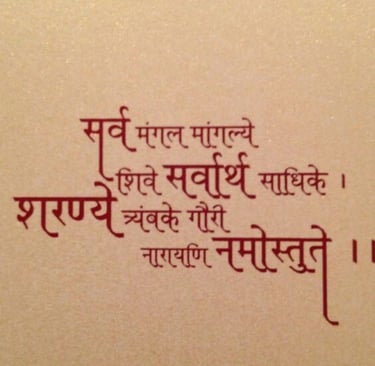 सर्व मंगल मांगल्ये
शिवे सर्वार्थ साधिके ।
शरण्ये त्र्यंबके गौरी
नारायणि नमोस्तुते ।।